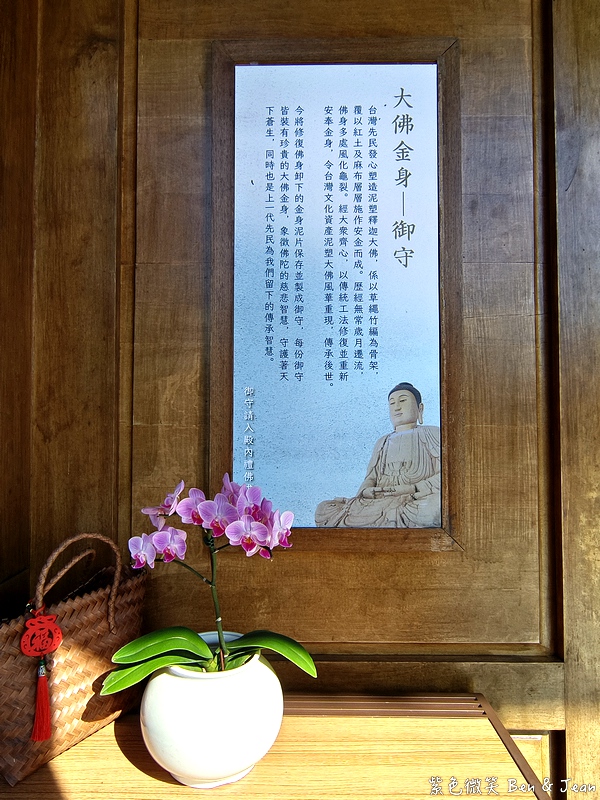 大佛金身—御守
台灣先民發心塑造泥塑釋迦大佛，係以草繩竹編為骨架，
覆以紅土及麻布層層施作安金而成。歷經無常歲月遷流，
佛身多處風化龜裂。經大眾齊心，以傳統工法修復並重新
安奉金身，令台灣文化資產泥塑大佛風華重現，傳承後世。
今將修復佛身卸下的金身泥片保存並製成御守，每份御守
皆裝有珍貴的大佛金身，象徵佛陀的慈悲智慧，守護著天
下蒼生，同時也是上一代先民為我們留下的傳承智慧。
御守請入殿內禮佛
福
紫色微笑 Ben & Jean